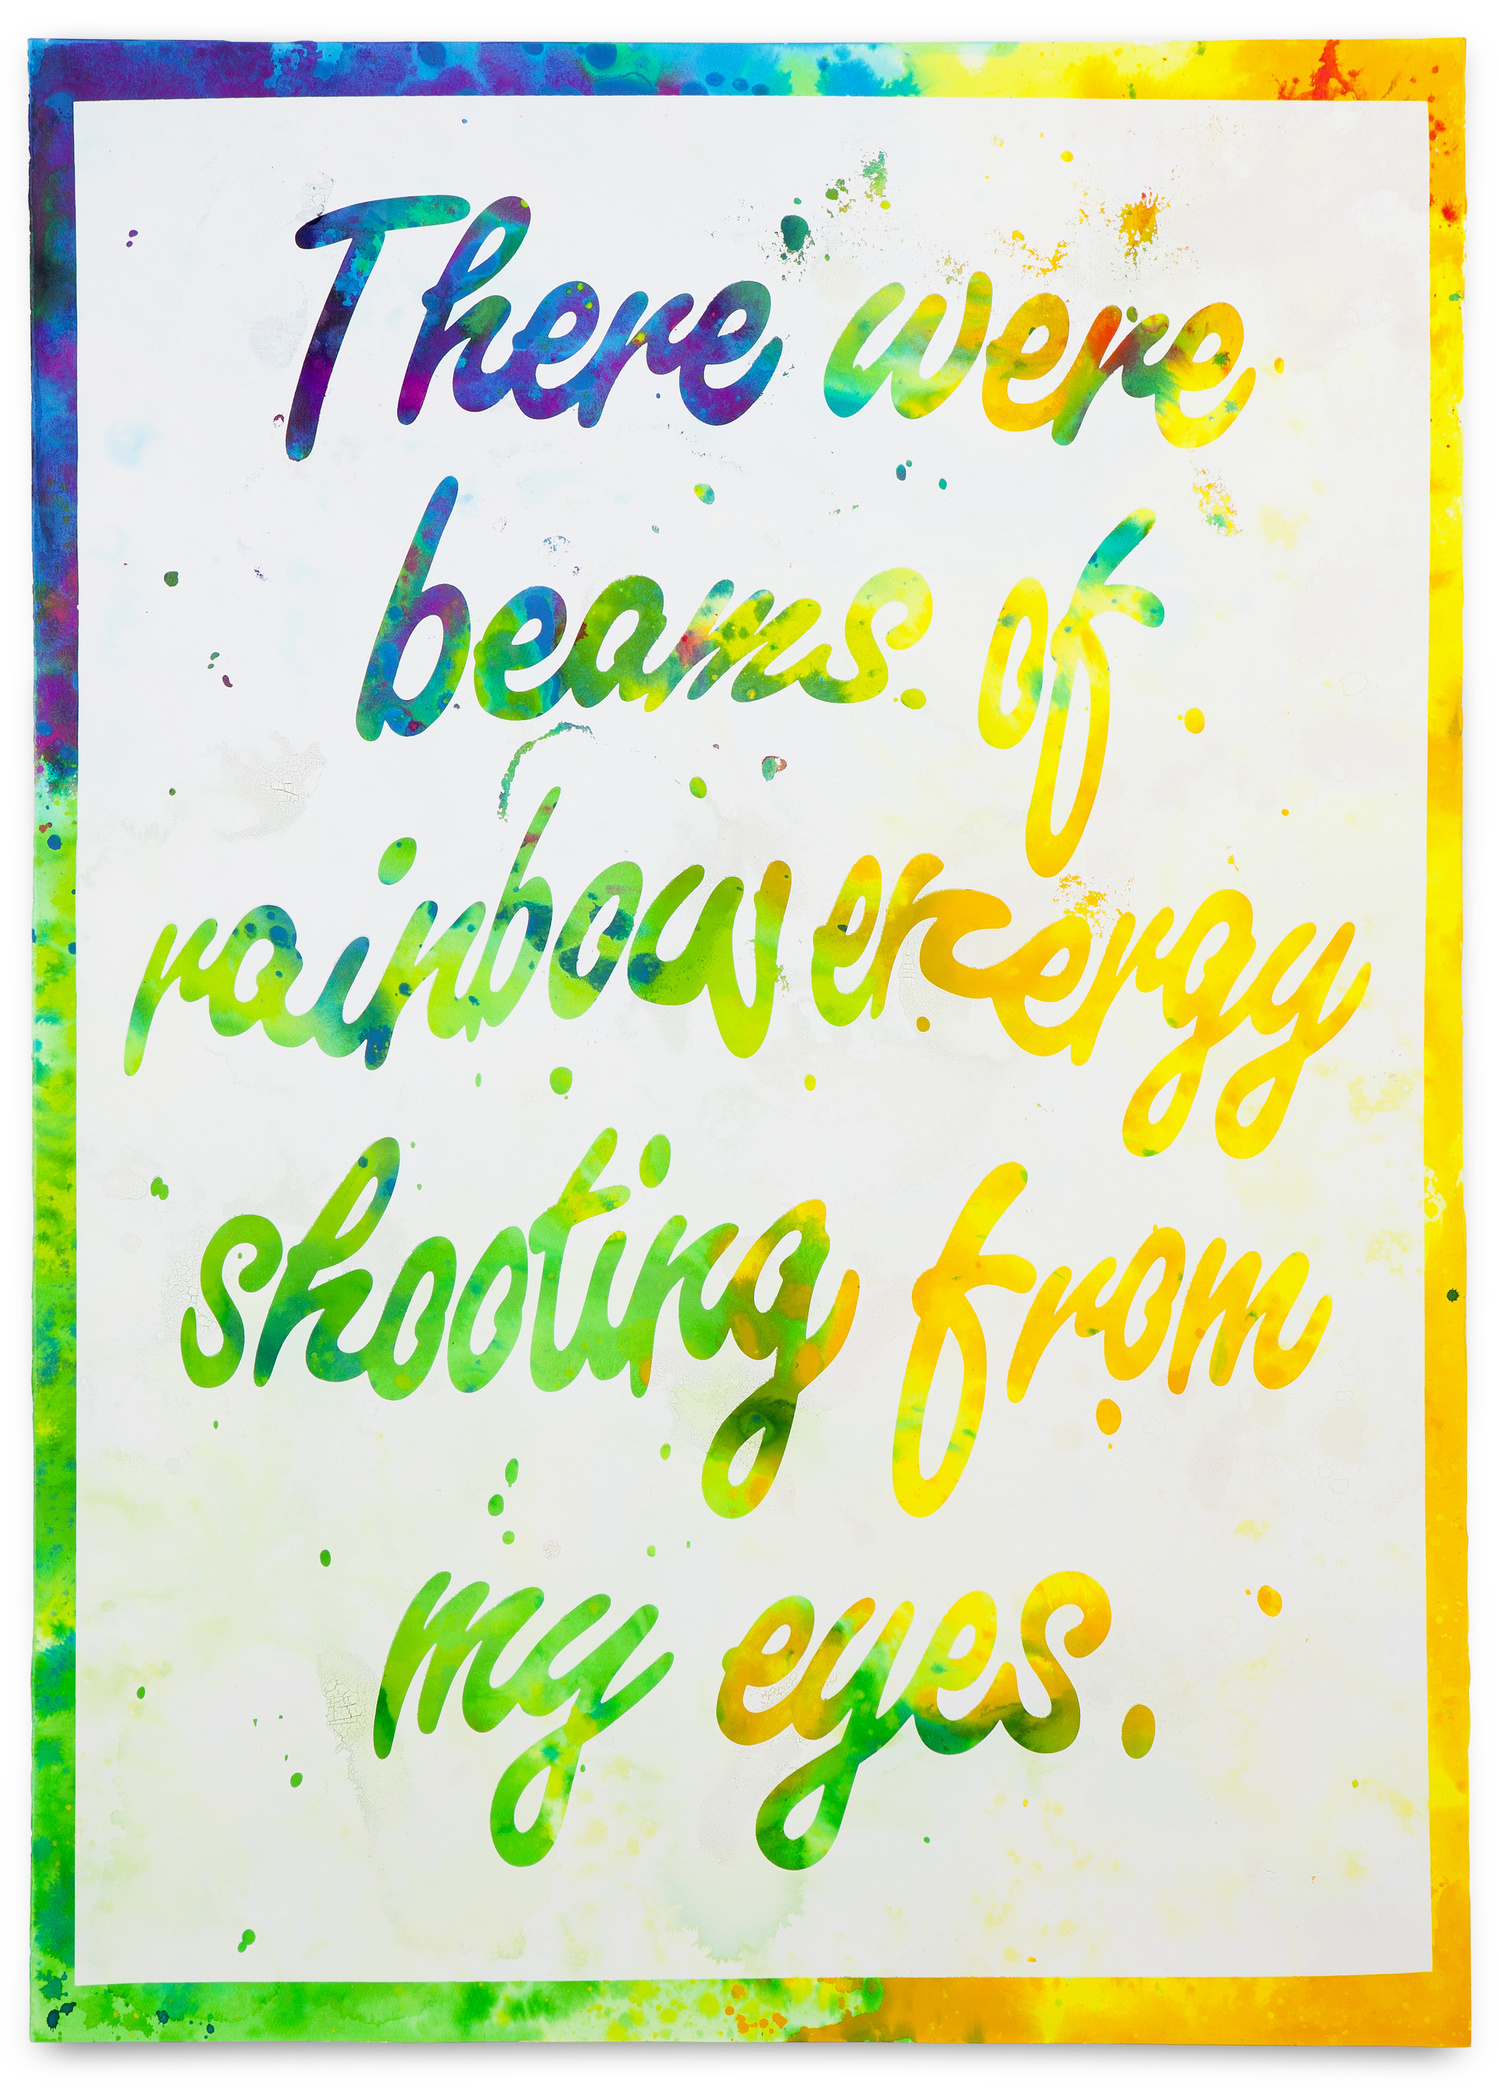 There were
beams of
rainbow energy
shooting from
my eyes.